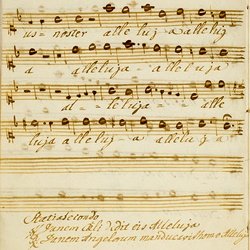 us noster alleluja alleluj
a alleluja alleluja
al leluja alle
luja alleluja alleluja
Panem cæli dedit eis Alleluja
Panem Angelorum manducavit homo Allelu